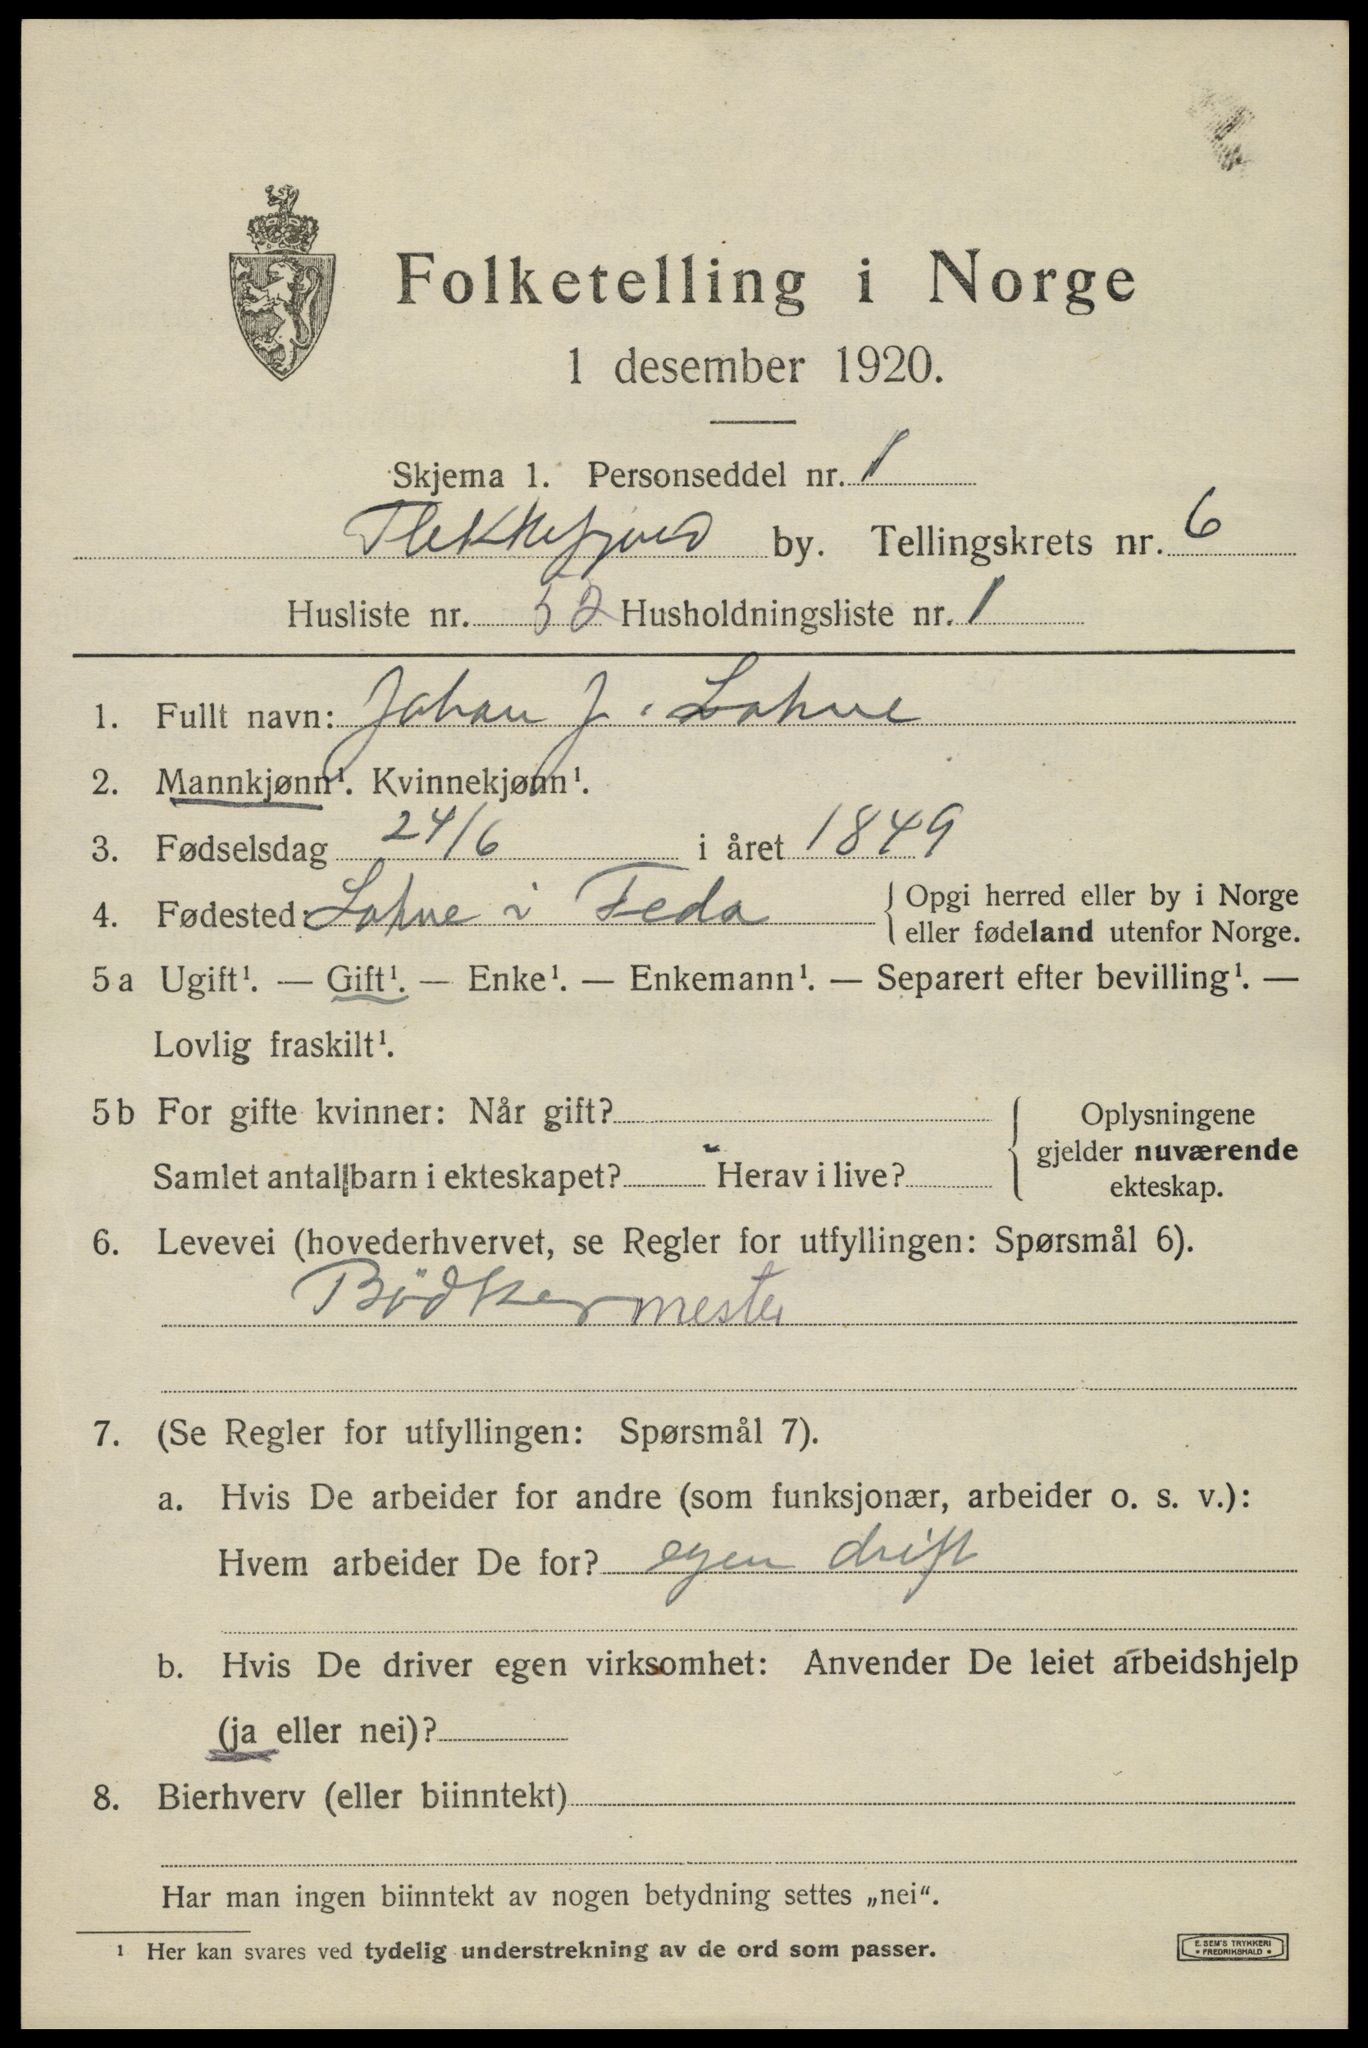 Folketelling i Norge
1 desember 1920.
Skjema 1. Personseddel nr. 1
Flekkefjord by. Tellingskrets nr. 6
Husliste nr. 52 Husholdningsliste nr. 1
1. Fullt navn: Johan J. Lohne
2. Mannkjønn¹. Kvinnekjønn¹.
3. Fødselsdag 24/6 i året 1849
4. Fødested: Lohne i Feda { Opgi herred eller by i Norge
eller fødeland utenfor Norge.
5 a Ugift¹. — Gift¹. — Enke¹. — Enkemann¹. — Separert efter bevilling¹. —
Lovlig fraskilt¹.
5 b For gifte kvinner: Når gift? { Oplysningene
gjelder nuværende
Samlet antall barn i ekteskapet? Herav i live? ekteskap.
6. Levevei (hovederhvervet, se Regler for utfyllingen: Spørsmål 6).
Bødkermester
7. (Se Regler for utfyllingen: Spørsmål 7).
a. Hvis De arbeider for andre (som funksjonær, arbeider o. s. v.):
Hvem arbeider De for? egen drift
b. Hvis De driver egen virksomhet: Anvender De leiet arbeidshjelp
(ja eller nei)?
8. Bierhverv (eller biinntekt)
Har man ingen biinntekt av nogen betydning settes „nei“.
¹ Her kan svares ved tydelig understrekning av de ord som passer.
E. SEM'S TRYKKERI
• FREDRIKSHALD •